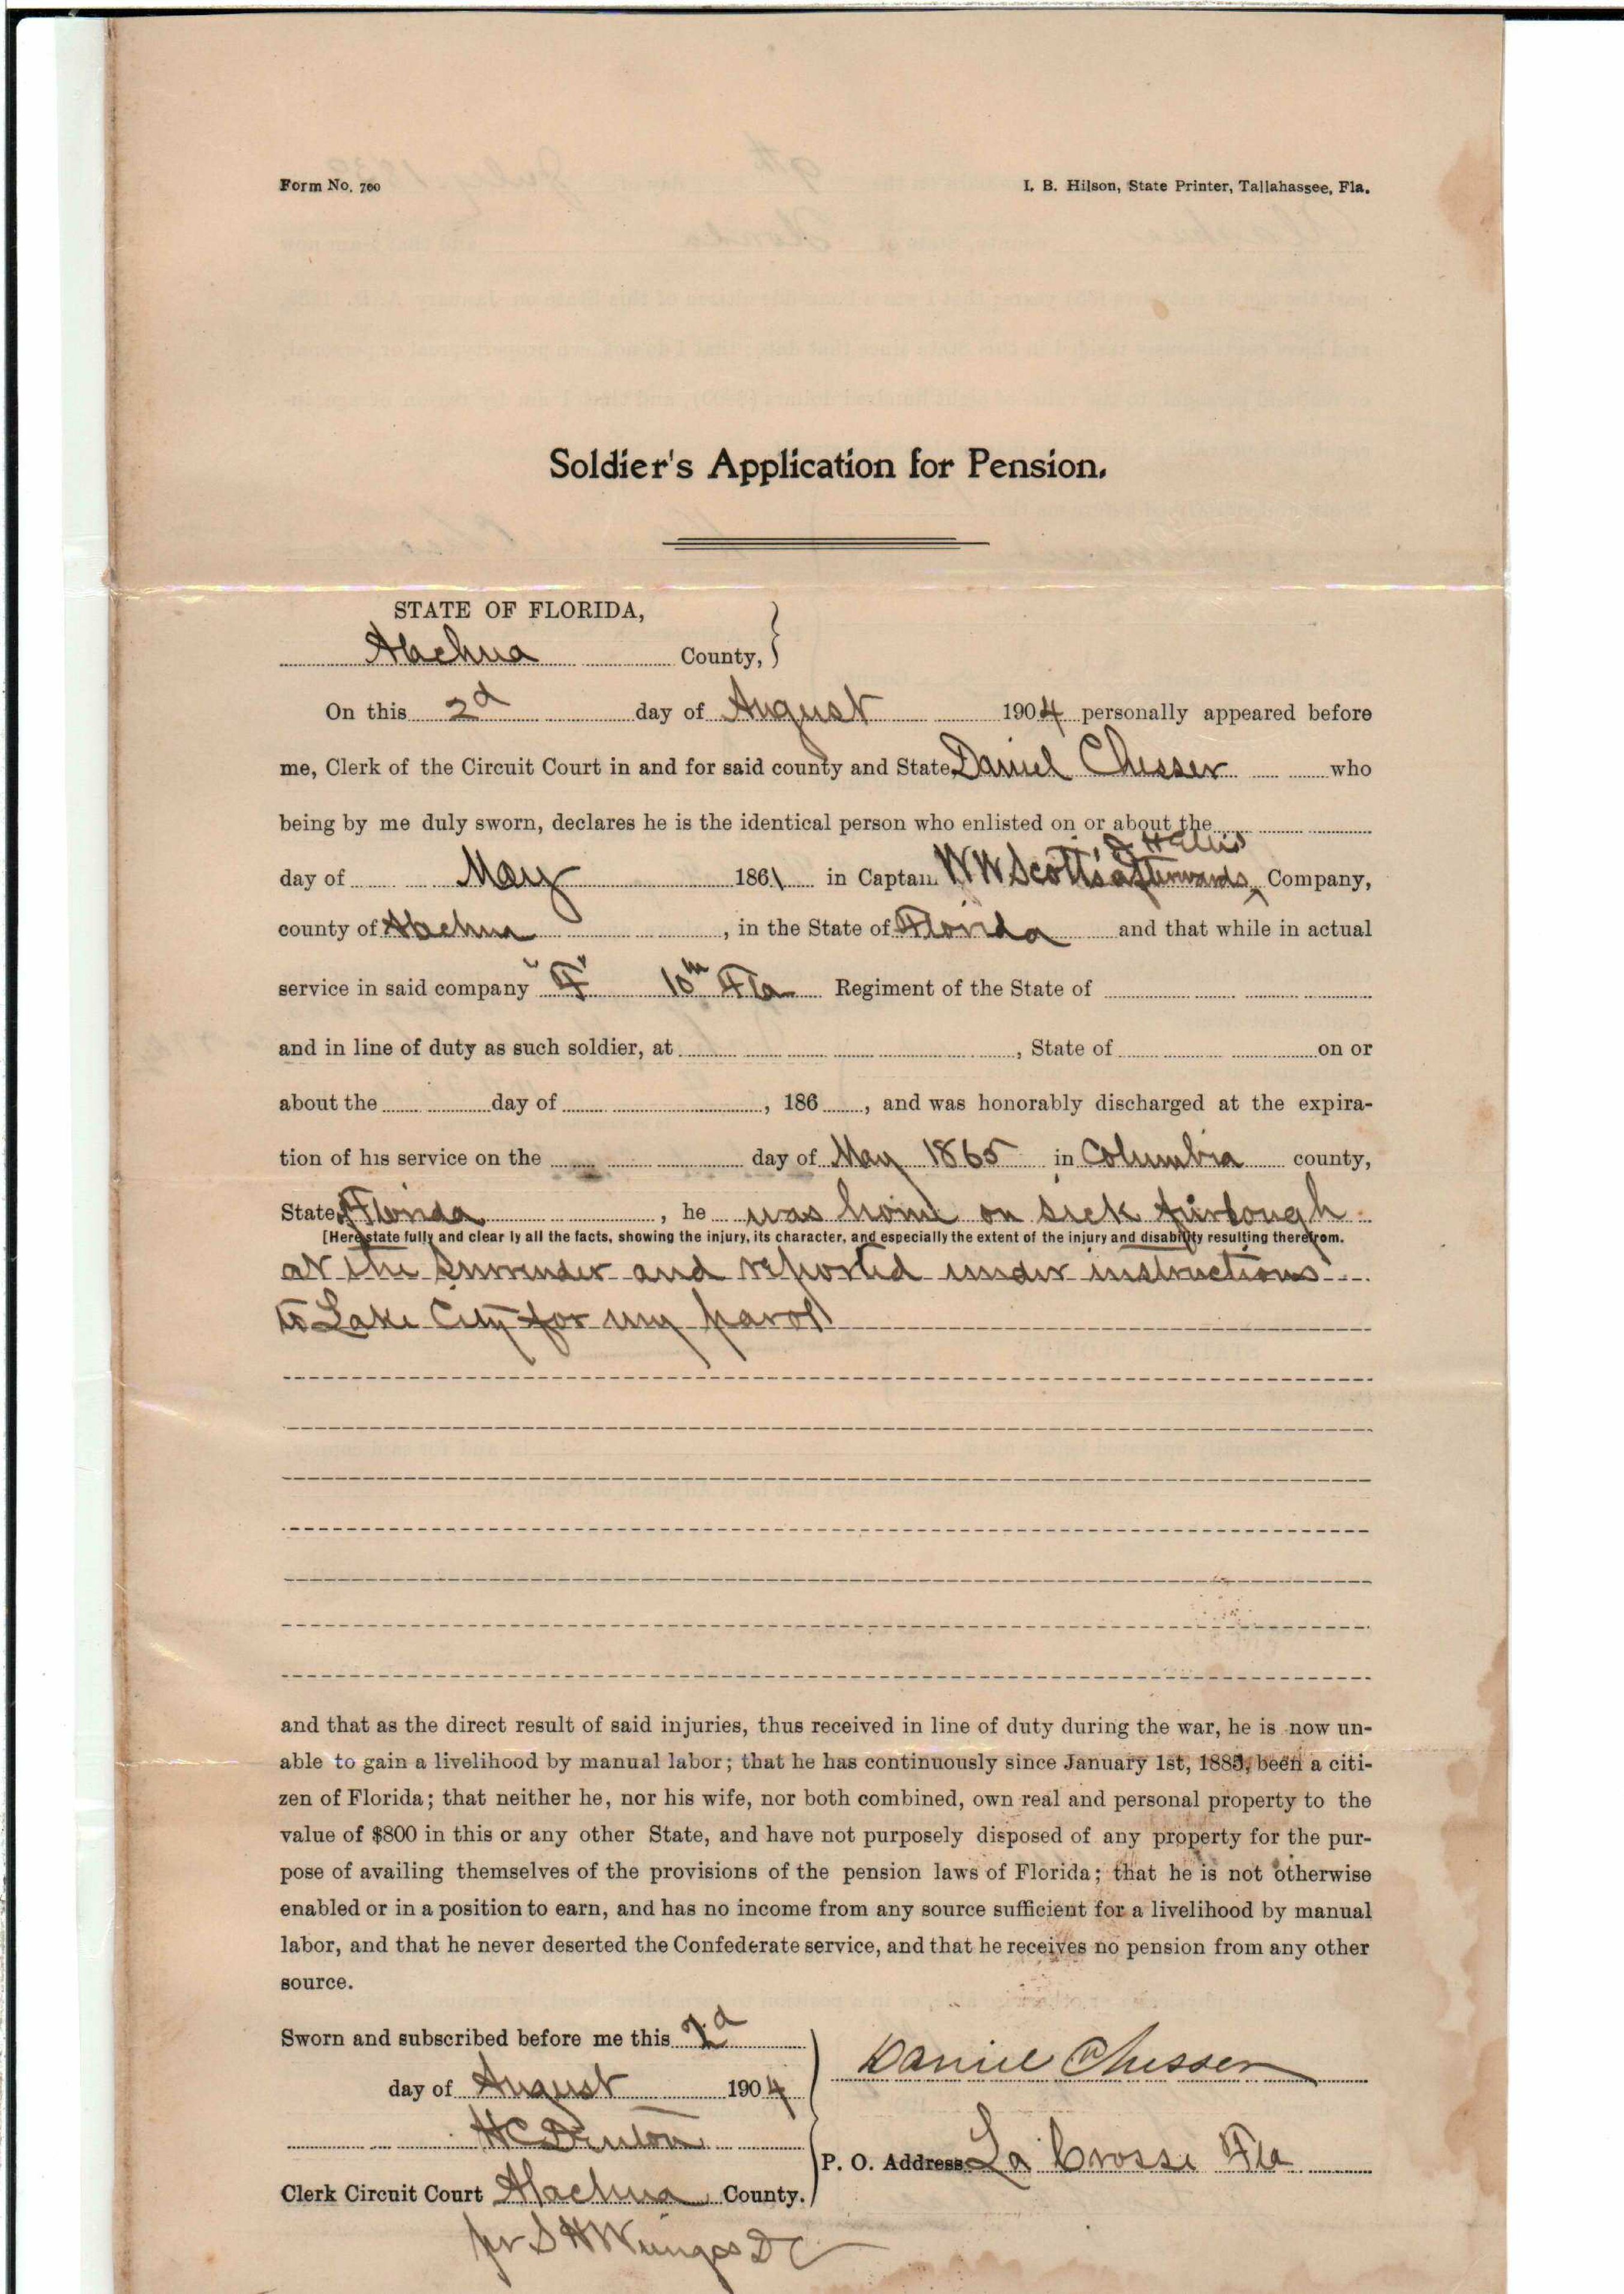 Form No. 760
I. B. Hilson, State Printer, Tallahassee, Fla.
Soldier's Application for Pension.
STATE OF FLORIDA,
Alachua County,
On this 2d day of August 1904 personally appeared before
me, Clerk of the Circuit Court in and for said county and State Daniel Chesser who
being by me duly sworn, declares he is the identical person who enlisted on or about the
day of May 1861 in Captain W W Scott's afterwards Company,
county of Alachua, in the State of Florida and that while in actual
service in said company "F" 10th Fla Regiment of the State of
and in line of duty as such soldier, at , State of on or
about the day of , 186 , and was honorably discharged at the expira-
tion of his service on the day of May 1865 in Columbia county,
State of Florida, he was home on sick furlough
[Here state fully and clear ly all the facts, showing the injury, its character, and especially the extent of the injury and disability resulting therefrom.
at the surrender and reported under instructions
to Lake City for my parol
and that as the direct result of said injuries, thus received in line of duty during the war, he is now un-
able to gain a livelihood by manual labor; that he has continuously since January 1st, 1885, been a citi-
zen of Florida; that neither he, nor his wife, nor both combined, own real and personal property to the
value of $800 in this or any other State, and have not purposely disposed of any property for the pur-
pose of availing themselves of the provisions of the pension laws of Florida; that he is not otherwise
enabled or in a position to earn, and has no income from any source sufficient for a livelihood by manual
labor, and that he never deserted the Confederate service, and that he receives no pension from any other
source.
Sworn and subscribed before me this 2d
day of August 1904
Daniel Chesser
H C Denton
P. O. Address La Crosse Fla
Clerk Circuit Court Alachua County.
per S H Wienges D C